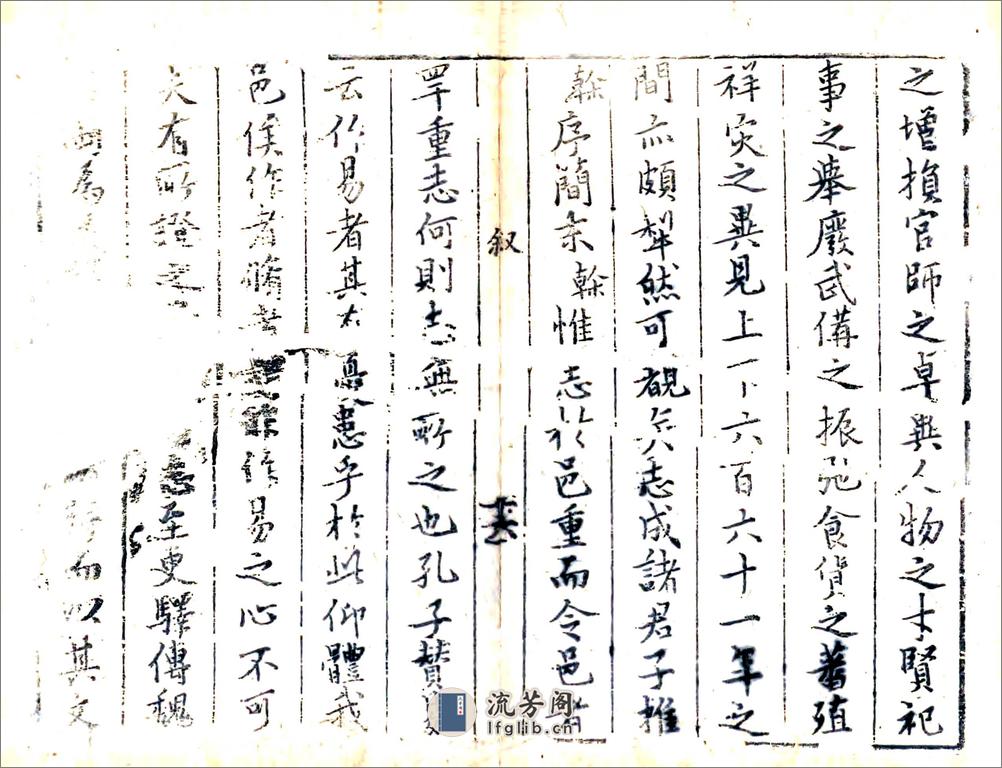 之增損官師之卓異人物之才賢祀
事之舉廢武備之振弛食貨之蕃殖
祥灾之異見上下六百六十一年之
間亦頗犁然可覩矣志成諸君子推
榦序簡余榦惟志於邑重而令邑者
叙
罕重志何則志無所之也孔子贊
云作易者其有憂患乎於此仰體我
邑侯作者脩者作易之心不可
夫有所證至吏驛傳魏
為而以其文
流芳阁
lfglib.cn